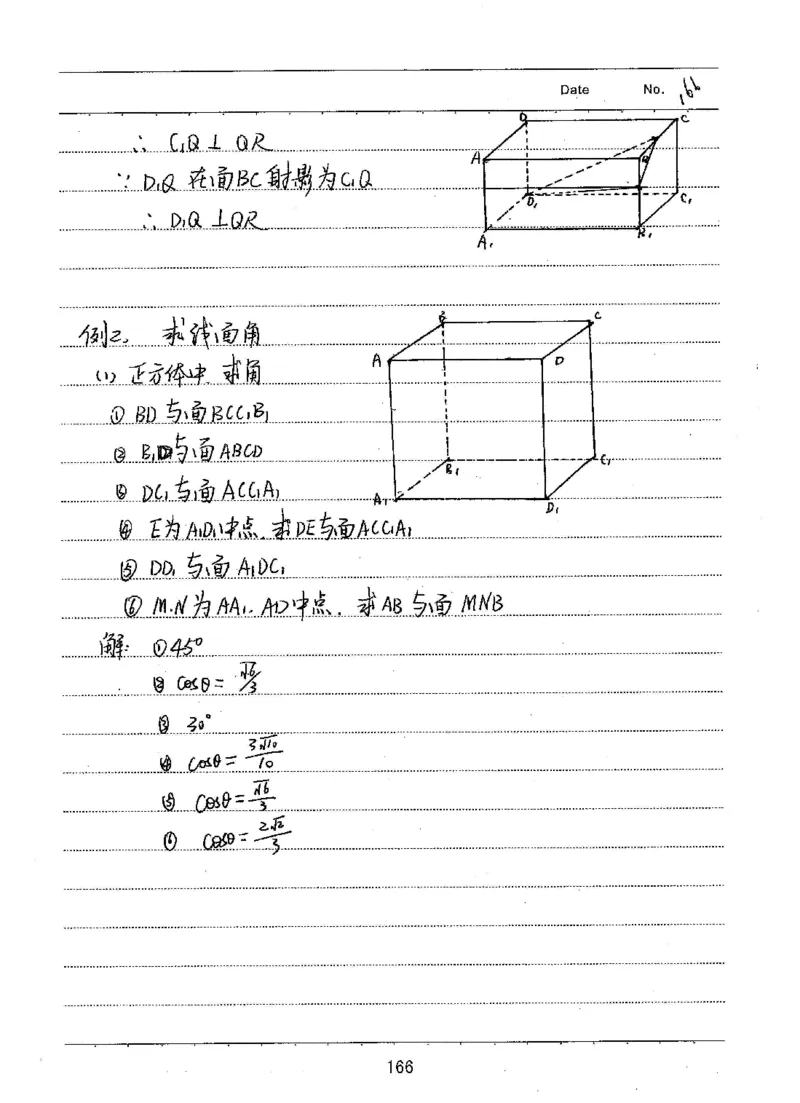 Date No. 166
∴ C₁Q ⊥ QR
∵ D₁Q 在面BC₁射影为C₁Q
∴ D₁Q ⊥QR
D C
A
D₁ C₁
A₁ B₁
例2. 求线面角
(1) 正方体中、求角
① BD 与面BCC₁B₁
② B₁D与面ABCD
③ DC₁与面ACC₁A₁
④ E为A₁D₁中点、求DE与面ACC₁A₁
⑤ DD₁ 与面A₁DC₁
⑥ M.N为AA₁. AD中点. 求AB与面MNB
B C
A D
B₁ C₁
A₁ D₁
解: ①45°
② cosθ = √6/3
③ 30°
④ cosθ = 3√10/10
⑤ cosθ = √6/3
⑥ cosθ = 2√2/3
166